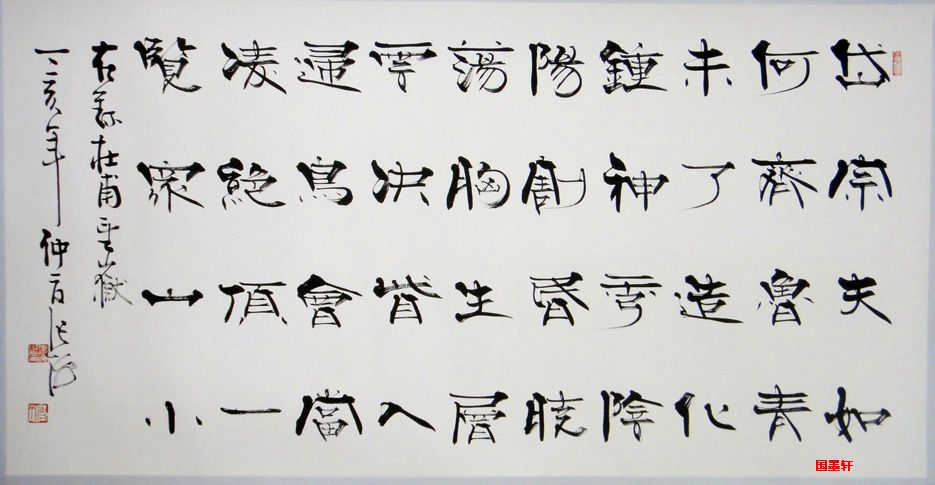 岱宗夫如
何齊魯青
未了造化
鍾神秀陰
陽割昏曉
蕩胸生層
雲決眥入
歸鳥會當
凌絕頂一
覽眾山小
右錄杜甫望嶽
亥年仲
国墨轩